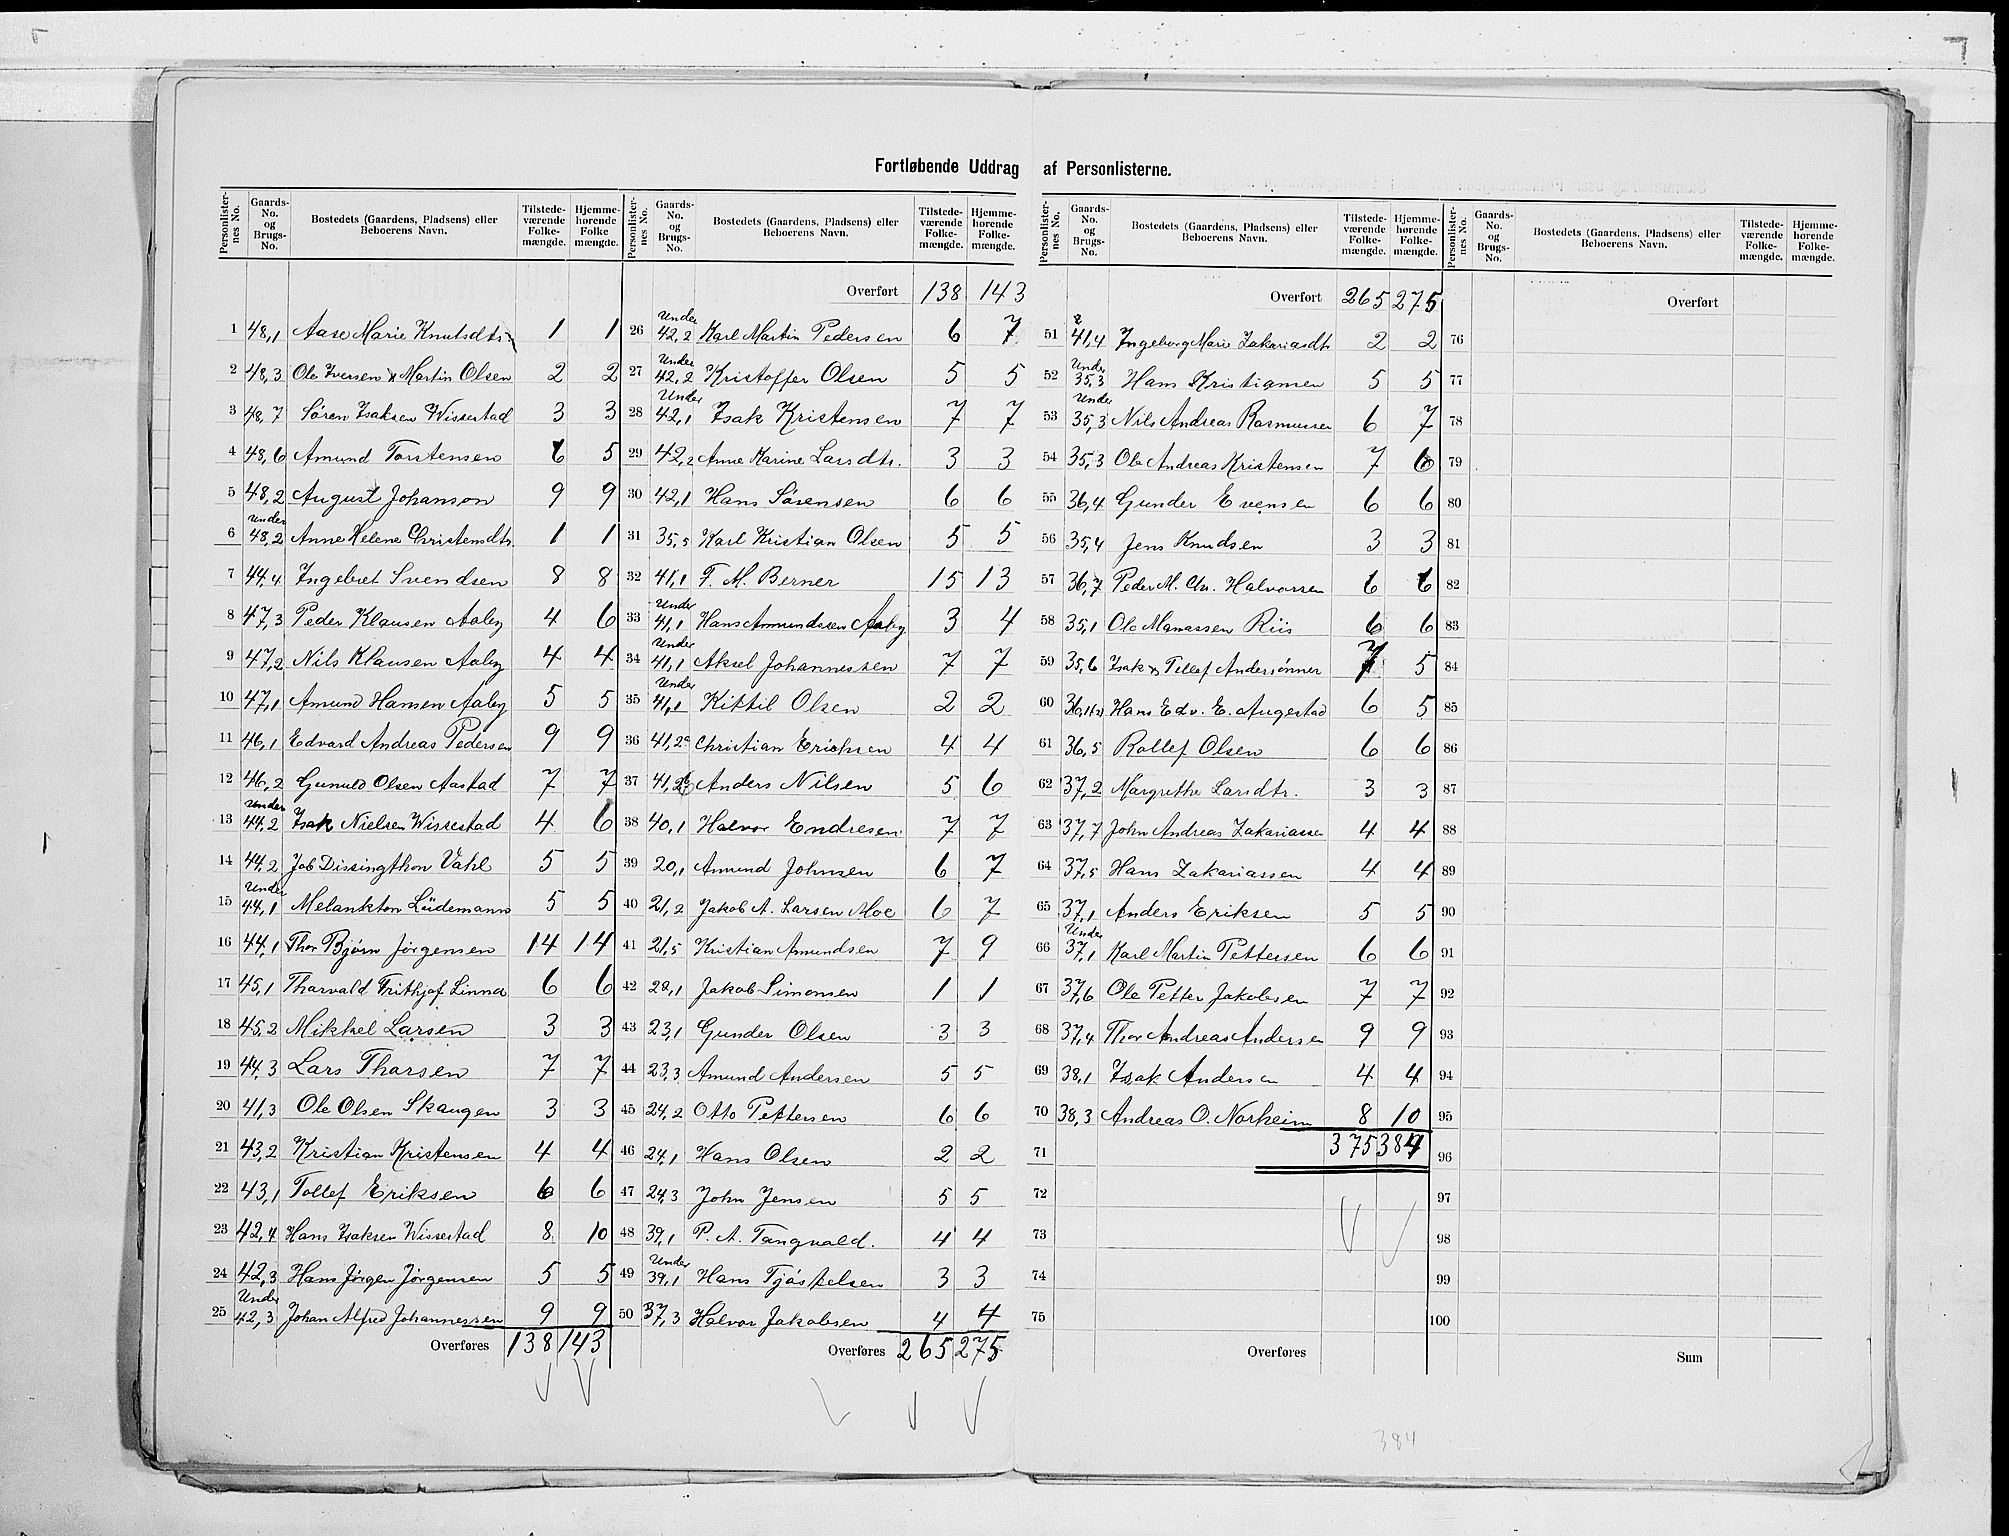 Fortløbende Uddrag af Personlisterne.
Personlister-nes No. Gaards-No. og Brugs-No. Bostedets (Gaardens, Pladsens) eller Beboerens Navn. Tilstede-værende Folke-mængde. Hjemme-hørende Folke mængde.
1 48,1 Aase Marie Knutsdtr 1 1
2 48,3 Ole Iversen & Martin Olsen 2 2
3 48,7 Søren Isaksen Wissestad 3 3
4 48,6 Amund Torstensen 6 5
5 48,2 August Johanson 9 9
6 Under 48,2 Anne Helene Christensdtr. 1 1
7 44,4 Ingebret Svendsen 8 8
8 47,3 Peder Klausen Aaby 4 6
9 47,2 Nils Klausen Aaby 4 4
10 47,1 Amund Hansen Aaby 5 5
11 46,1 Edvard Andreas Pedersen 9 9
12 46,2 Gunuld Olsen Aastad 7 7
13 Under 44,2 Isak Nielsen Wissestad 4 6
14 44,2 Job Dissingthon Vahl 5 5
15 Under 44,1 Melankton Lüdemann 5 5
16 44,1 Thor Bjørn Jørgensen 14 14
17 45,1 Tharvald Frithjof Linna 6 6
18 45,2 Mikkel Larsen 3 3
19 44,3 Lars Tharsen 7 7
20 41,3 Ole Olsen Skaugen 3 3
21 43,2 Kristian Kristensen 4 4
22 43,1 Tollef Eriksen 6 6
23 42,4 Hans Isaksen Wissestad 8 10
24 42,3 Hans Jørgen Jørgensen 5 5
25 Under 42,3 Johan Alfred Johannessen 9 9
Overføres 138 143
Personlister-nes No. Gaards-No. og Brugs-No. Bostedets (Gaardens, Pladsens) eller Beboerens Navn. Tilstede-værende Folke-mængde. Hjemme-hørende Folke-mængde.
Overført 138 143
26 Under 42,2 Karl Martin Pedersen 6 7
27 Under 42,2 Kristoffer Olsen 5 5
28 Under 42,1 Isak Kristensen 7 7
29 42,2 Anne Karine Larsdtr. 3 3
30 42,1 Hans Sørensen 6 6
31 35,5 Karl Kristian Olsen 5 5
32 41,1 F. M. Berner 15 13
33 Under 41,1 Hans Amundsen Aaby 3 4
34 Under 41,1 Aksel Johannessen 7 7
35 Under 41,1 Kittil Olsen 2 2
36 41,2a Christian Erichsen 4 4
37 41,2b Anders Nilsen 5 6
38 40,1 Halvor Endresen 7 7
39 20,1 Amund Johnsen 6 7
40 21,2 Jakob A. Larsen Moe 6 7
41 21,5 Kristian Amundsen 7 9
42 22,1 Jakob Simonsen 1 1
43 23,1 Gunder Olsen 3 3
44 23,3 Amund Andersen 5 5
45 24,2 Otto Pettersen 6 6
46 24,1 Hans Olsen 2 2
47 24,3 John Jensen 5 5
48 39,1 P. A. Tangvald. 4 4
49 Under 39,1 Hans Tjøstelsen 3 3
50 37,3 Halvor Jakobsen 4 4
Overføres 265 275
Personlister-nes No. Gaards-No. og Brugs-No. Bostedets (Gaardens, Pladsens) eller Beboerens Navn. Tilstede-værende Folke-mængde. Hjemme-hørende Folke-mængde.
Overført 265 275
51 41,4 Ingeborg Marie Zakariasdtr 2 2
52 Under 35,3 Hans Kristiansen 5 5
53 Under 35,3 Nils Andreas Rasmussen 6 7
54 35,3 Ole Andreas Kristensen 7 6
55 36,4 Gunder Evensen 6 6
56 35,4 Jens Knudsen 3 3
57 36,7 Peder M. Chr. Halvorsen 6 6
58 35,1 Ole Manassen Riis 6 6
59 35,6 Isak & Tellef Anderssønner 7 5
60 Hans Edv. E. Augestad 6 5
61 36,5 Rollef Olsen 6 6
62 37,2 Margrethe Larsdtr. 3 3
63 37,7 John Andreas Zakariassen 4 4
64 37,5 Hans Zakariassen 4 4
65 37,1 Anders Eriksen 5 5
66 Under 37,1 Karl Martin Pettersen 6 6
67 37,6 Ole Petter Jakobsen 7 7
68 37,4 Thor Andreas Andersen 9 9
69 38,1 Isak Andersen 4 4
70 38,3 Andreas O. Norheim 8 10
71 375 384
72
73
74
75
Overføres
Personlister-nes No. Gaards-No. og Brugs-No. Bostedets (Gaardens, Pladsens) eller Beboerens Navn. Tilstede-værende Folke-mængde. Hjemme-hørende Folke-mængde.
Overført
76
77
78
79
80
81
82
83
84
85
86
87
88
89
90
91
92
93
94
95
96
97
98
99
100
Sum
384